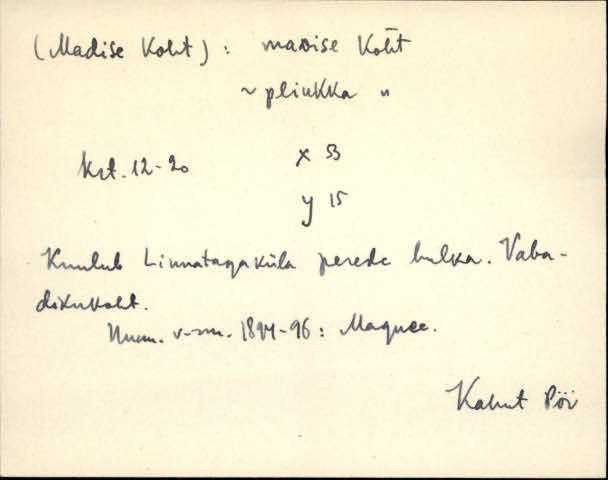 (Madise Koht) : maᴅise Kȭt
~ pliukka "
krt. 12-20 x 53
y 15
Kuulub Linnatagaküla perede hulka. Vaba-
dikukoht.
v-nn. 1894-96 : Magnee.
Kahut Pöi